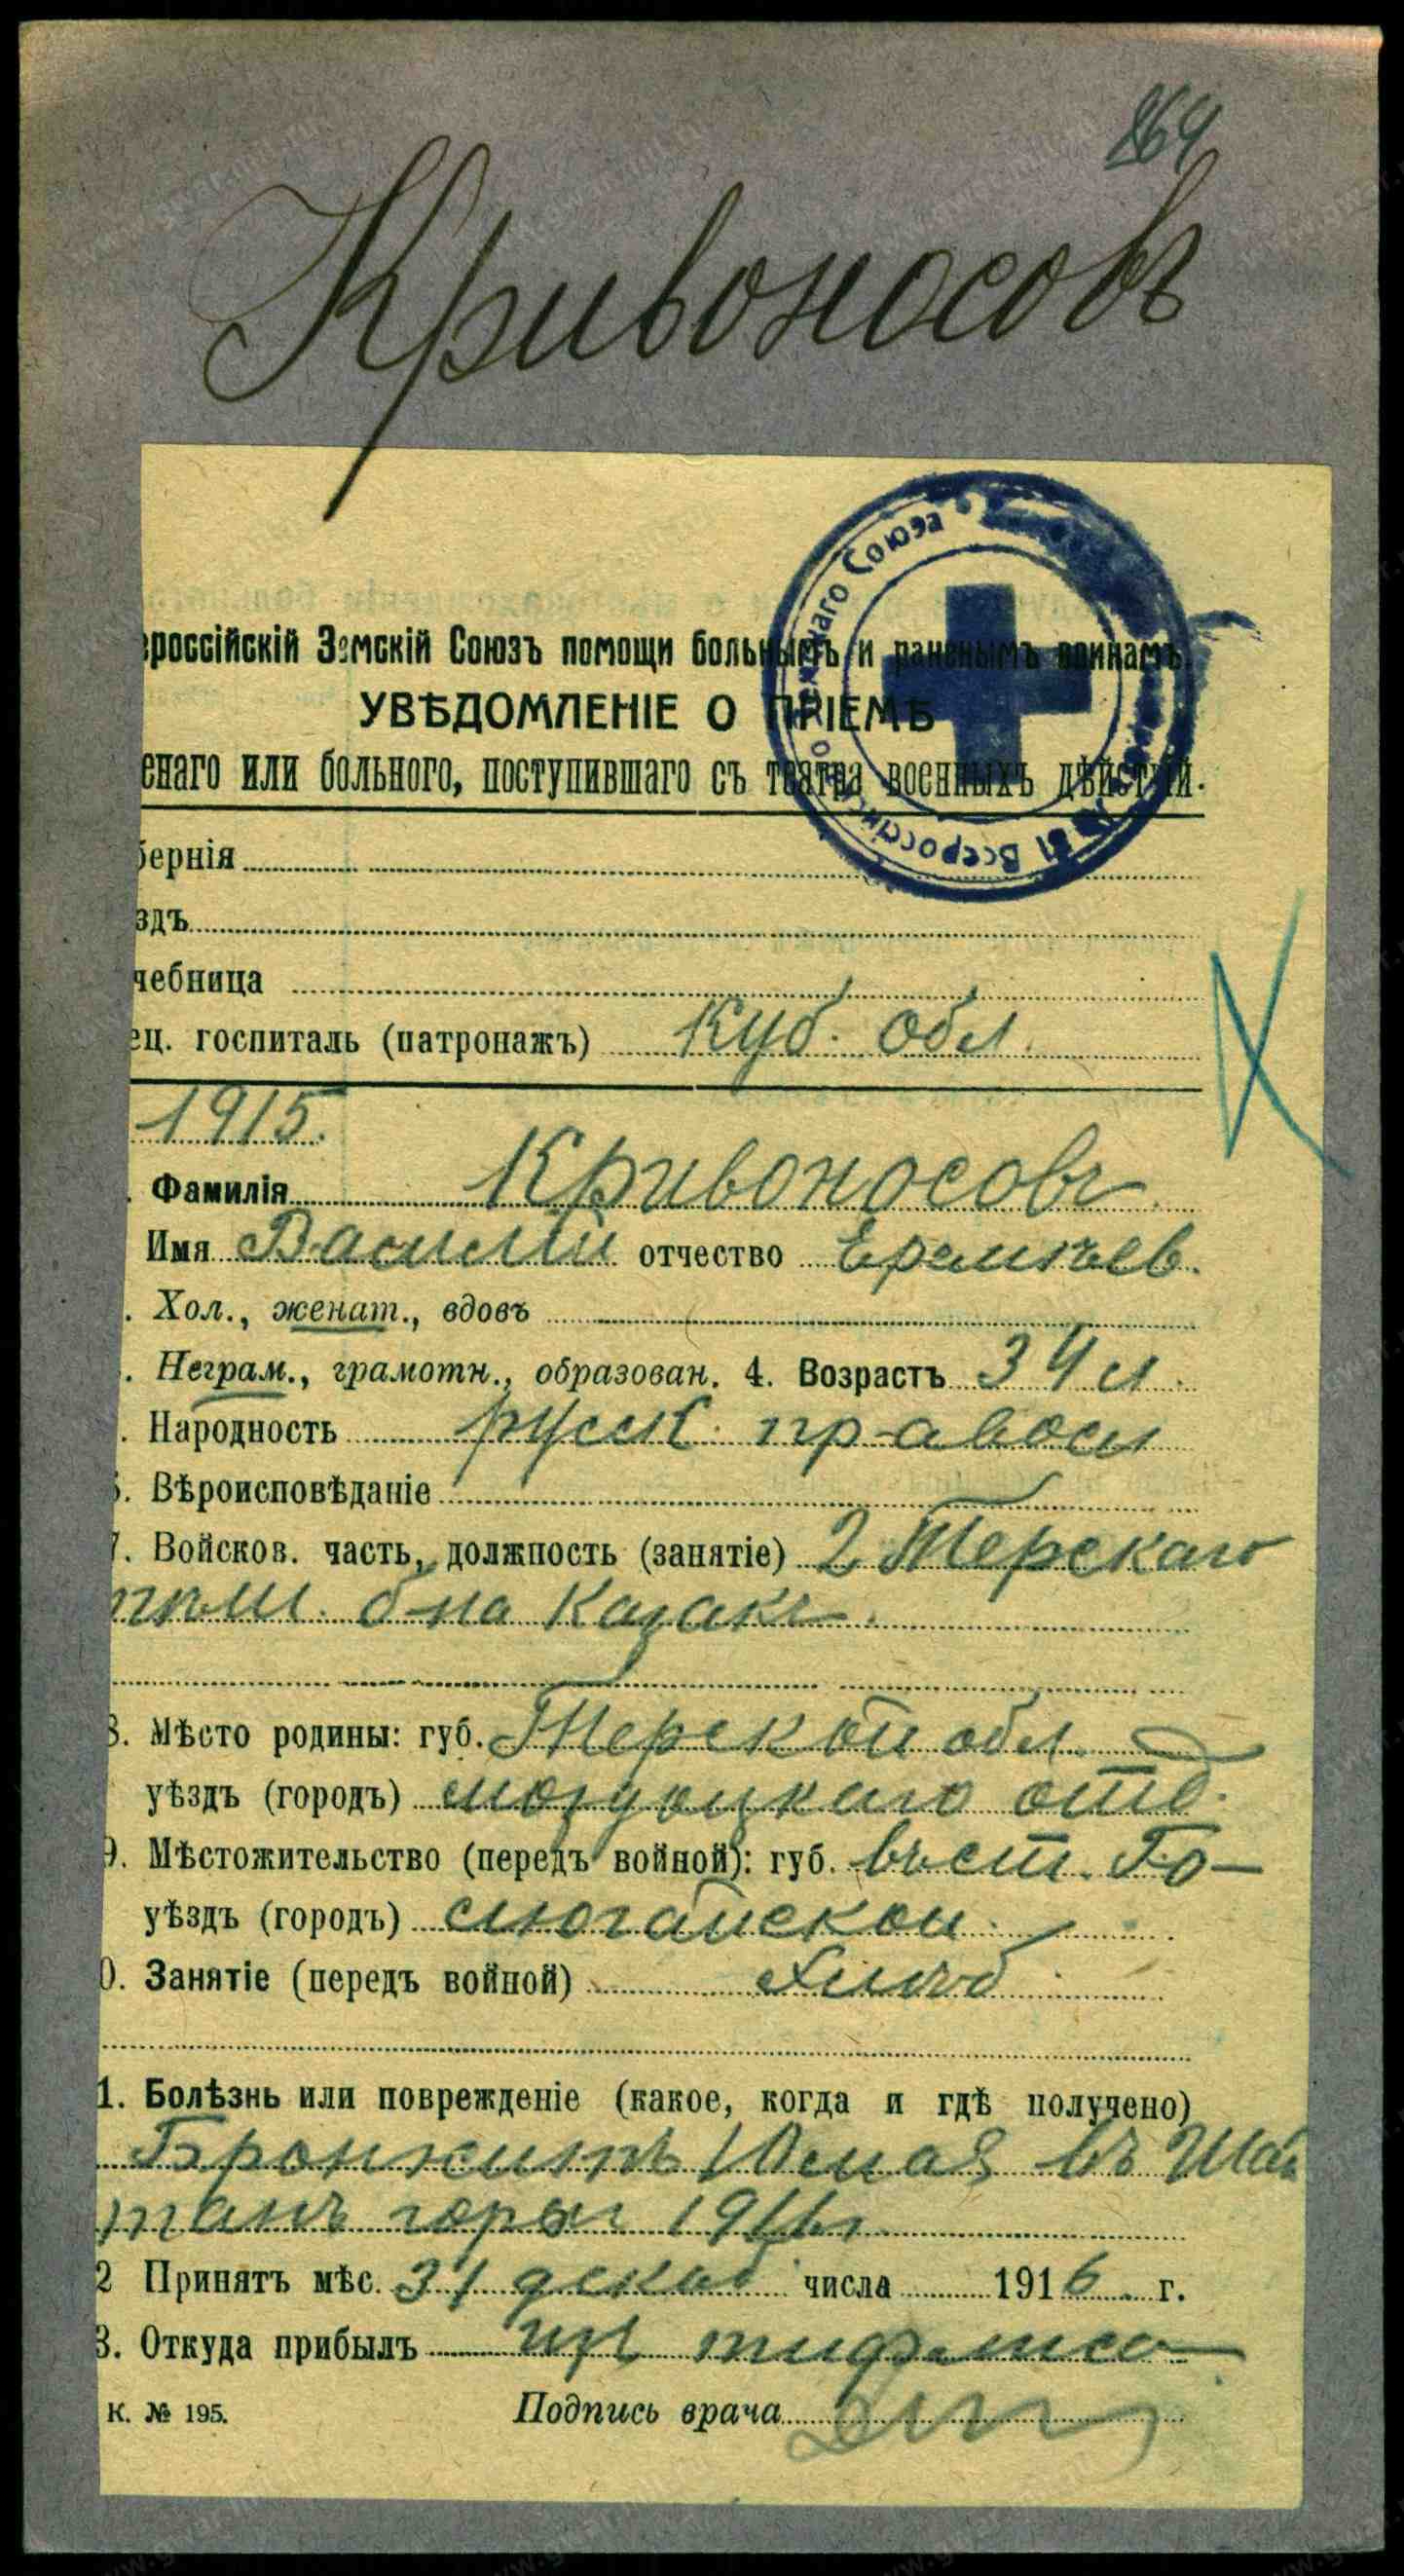 864
Кривоносовъ
ероссійскій Земскій Союзъ помощи больнымъ и раненымъ воинамъ.
УВѢДОМЛЕНІЕ О ПРІЕМѢ
енаго или больного, поступившаго съ театра военныхъ дѣйствій.
бернія
здъ
чебница
ец. госпиталь (патронажъ) Куб. обл.
1915.
. Фамилія Кривоносовъ
Имя Василій отчество Еремѣев.
. Хол., женат., вдовъ
. Неграм., грамотн., образован. 4. Возрастъ 34 л.
. Народность русск. правосл
6. Вѣроисповѣданіе
7. Войсков. часть, должность (занятіе) 2 Терскаго
пѣш. б-на казакъ.
8. Мѣсто родины: губ. Терской обл.
уѣздъ (городъ) моздоцкаго отд.
9. Мѣстожительство (передъ войной): губ. въ ст. Го-
уѣздъ (городъ)
0. Занятіе (передъ войной) хлѣб
1. Болѣзнь или поврежденіе (какое, когда и гдѣ получено)
Бронхитъ въ Шай
танъ горы 1916 г.
2 Принятъ мѣс. 31 декаб. числа 1916 г.
3. Откуда прибылъ из тифлиса
К. № 195. Подпись врача
Всероссійск Союза